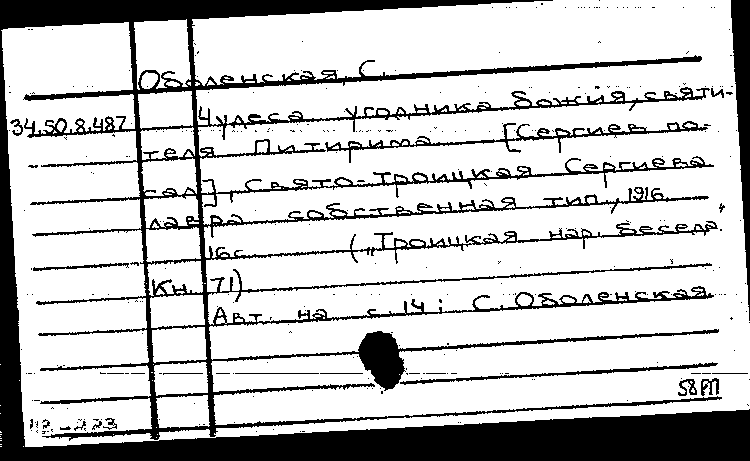 Оболенская, С.
34.50.8.487
Чудеса угодника Божия, святи-
теля Питирима [Сергиев по-
сад], Свято-Троицкая Сергиева
лавра собственная тип., 1916.
16с. („Троицкая нар. беседа"
Кн. 71).
Авт. на с. 14: С. Оболенская.
58РП